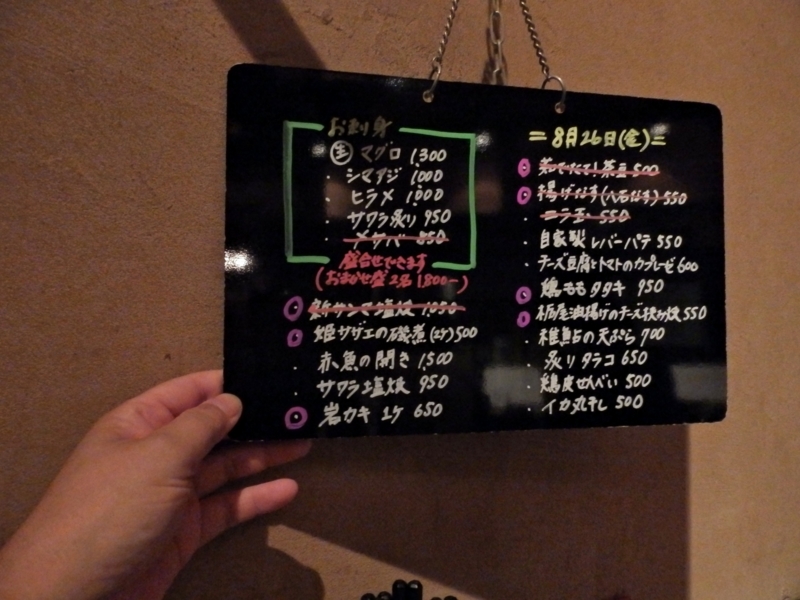 お刺身
生 マグロ 1,300
・シマアジ 1,000
・ヒラメ 1,000
・サワラ炙り 950
・〆サバ 850
盛合せできます
(おまかせ盛 2名 1,800ー)
新サンマ塩焼 1,050
姫サザエの磯煮(2ケ) 500
・赤魚の開き 1,500
・サワラ塩焼 950
岩カキ 1ケ 650
=8月26日(金)=
茹でたて!茶豆 500
揚げなす(八石なす) 550
・ニラ玉 550
・自家製レバーパテ 550
・チーズ豆腐とトマトのカプレーゼ 600
鶏ももタタキ 950
栃尾油揚げのチーズ挟み焼 550
・稚鮎の天ぷら 700
・炙りタラコ 650
・鶏皮せんべい 500
・イカ丸干し 500